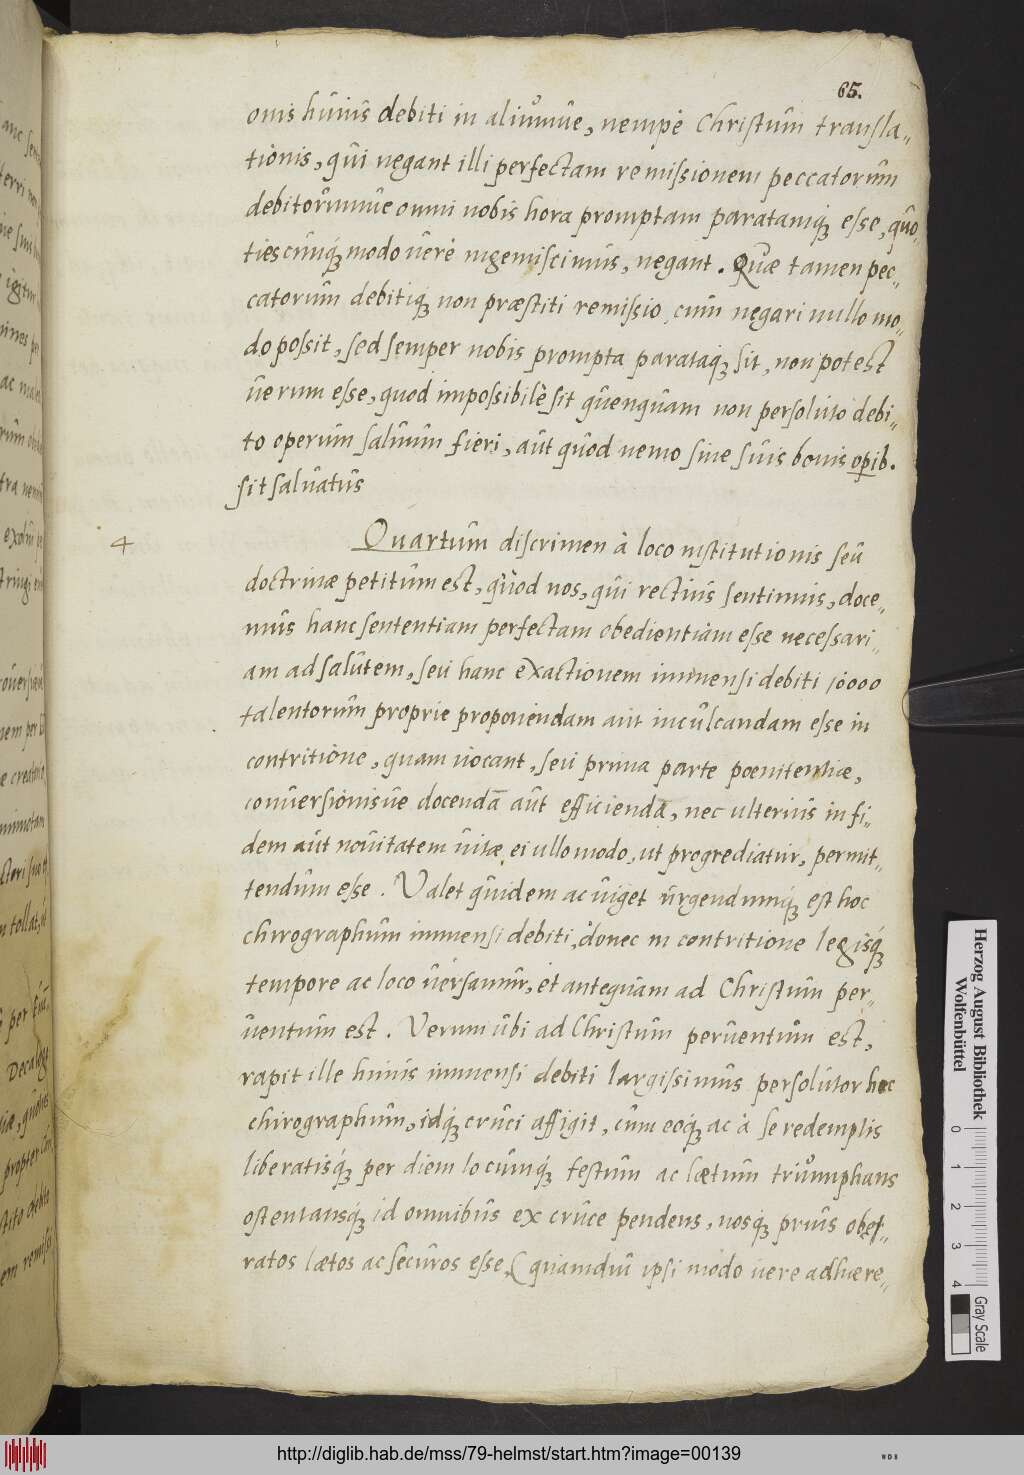 65.
onis huius debiti in aliumue, nempè Christum transla-
tionis, qui negant illi perfectam remissionem peccatorum
debitorumue omni nobis hora promptam paratamq́ꝫ esse, quo-
tiescunq́ꝫ modo uerè ingemiscimus, negant. Quæ tamen pec-
catorum debitiq́ꝫ non præstiti remissio, cum negari nullo mo-
do possit, sed semper nobis prompta parataq́ꝫ sit, non potest
uerum esse, quod impossibilè sit quenquam non persoluto debi-
to operum saluum fieri, aut quod nemo sine suis bonis operib.
sit saluatus
4
Quartum discrimen à loco institutionis seu
doctrinæ petitum est, quod nos, qui rectius sentimus, doce-
mus hanc sententiam perfectam obedientiam esse necessari-
am ad salutem, seu hanc exactionem immensi debiti 10000
talentorum proprie proponendam aut inculcandam esse in
contritione, quam uocant, seu prima parte poenitentiæ,
conuersionisue docendā aut efficiendā, nec ulterius in fi-
dem aut nouitatem uitæ, ei ullo modo, ut progrediatur, permit-
tendum esse. Valet quidem ac uiget urgendumq́ꝫ est hoc
chirographum immensi debiti, donec in contritione legisq́ꝫ
tempore ac loco uersamur, et antequam ad Christum per-
uentum est. Verum ubi ad Christum peruentum est,
rapit ille huius immensi debiti largissimus persolutor hoc
chirographum, idq́ꝫ cruci affigit, cum eoq́ꝫ ac à se redemptis
liberatisq́ꝫ per diem locumq́ꝫ festum ac lætum triumphans
ostentansq́ꝫ id omnibus ex cruce pendens, nosq́ꝫ prius obæ-
ratos lætos ac securos esse, (quamdiu ipsi modo uere adhære-
Herzog August Bibliothek
Wolfenbüttel
0 1 2 3 4
Gray Scale
http://diglib.hab.de/mss/79-helmst/start.htm?image=00139